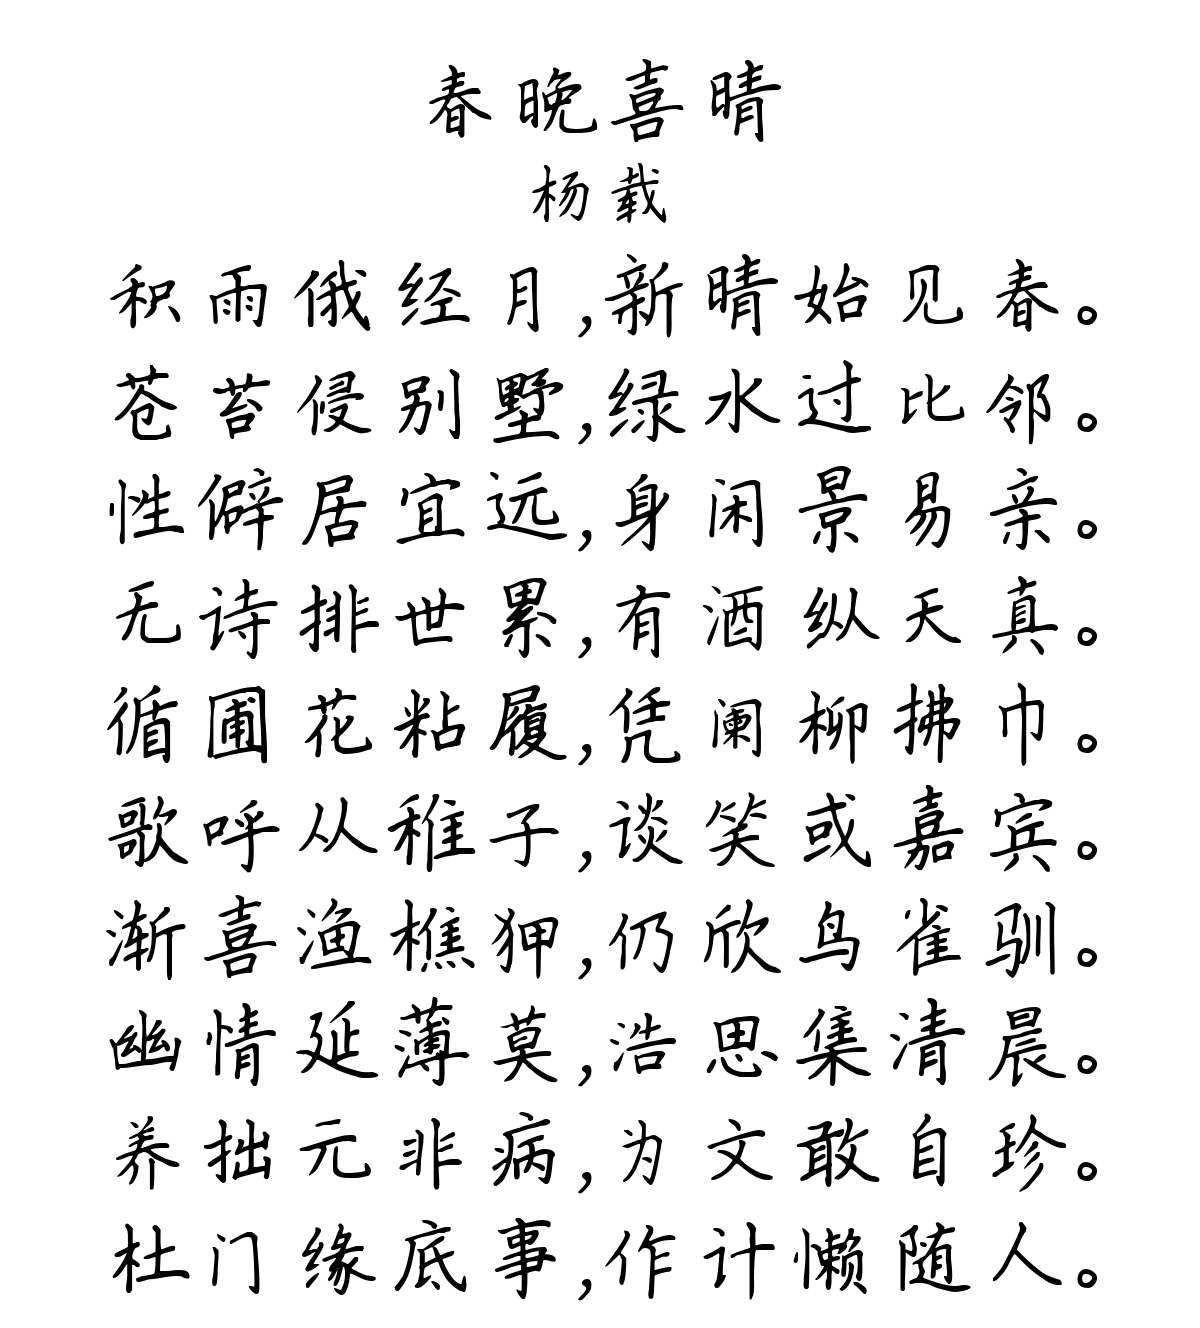 春晚喜晴
杨载
积雨俄经月,新晴始见春。
苍苔侵别墅,绿水过比邻。
性僻居宜远,身闲景易亲。
无诗排世累,有酒纵天真。
循圃花粘履,凭阑柳拂巾。
歌呼从稚子,谈笑或嘉宾。
渐喜渔樵狎,仍欣鸟雀驯。
幽情延薄莫,浩思集清晨。
养拙元非病,为文敢自珍。
杜门缘底事,作计懒随人。